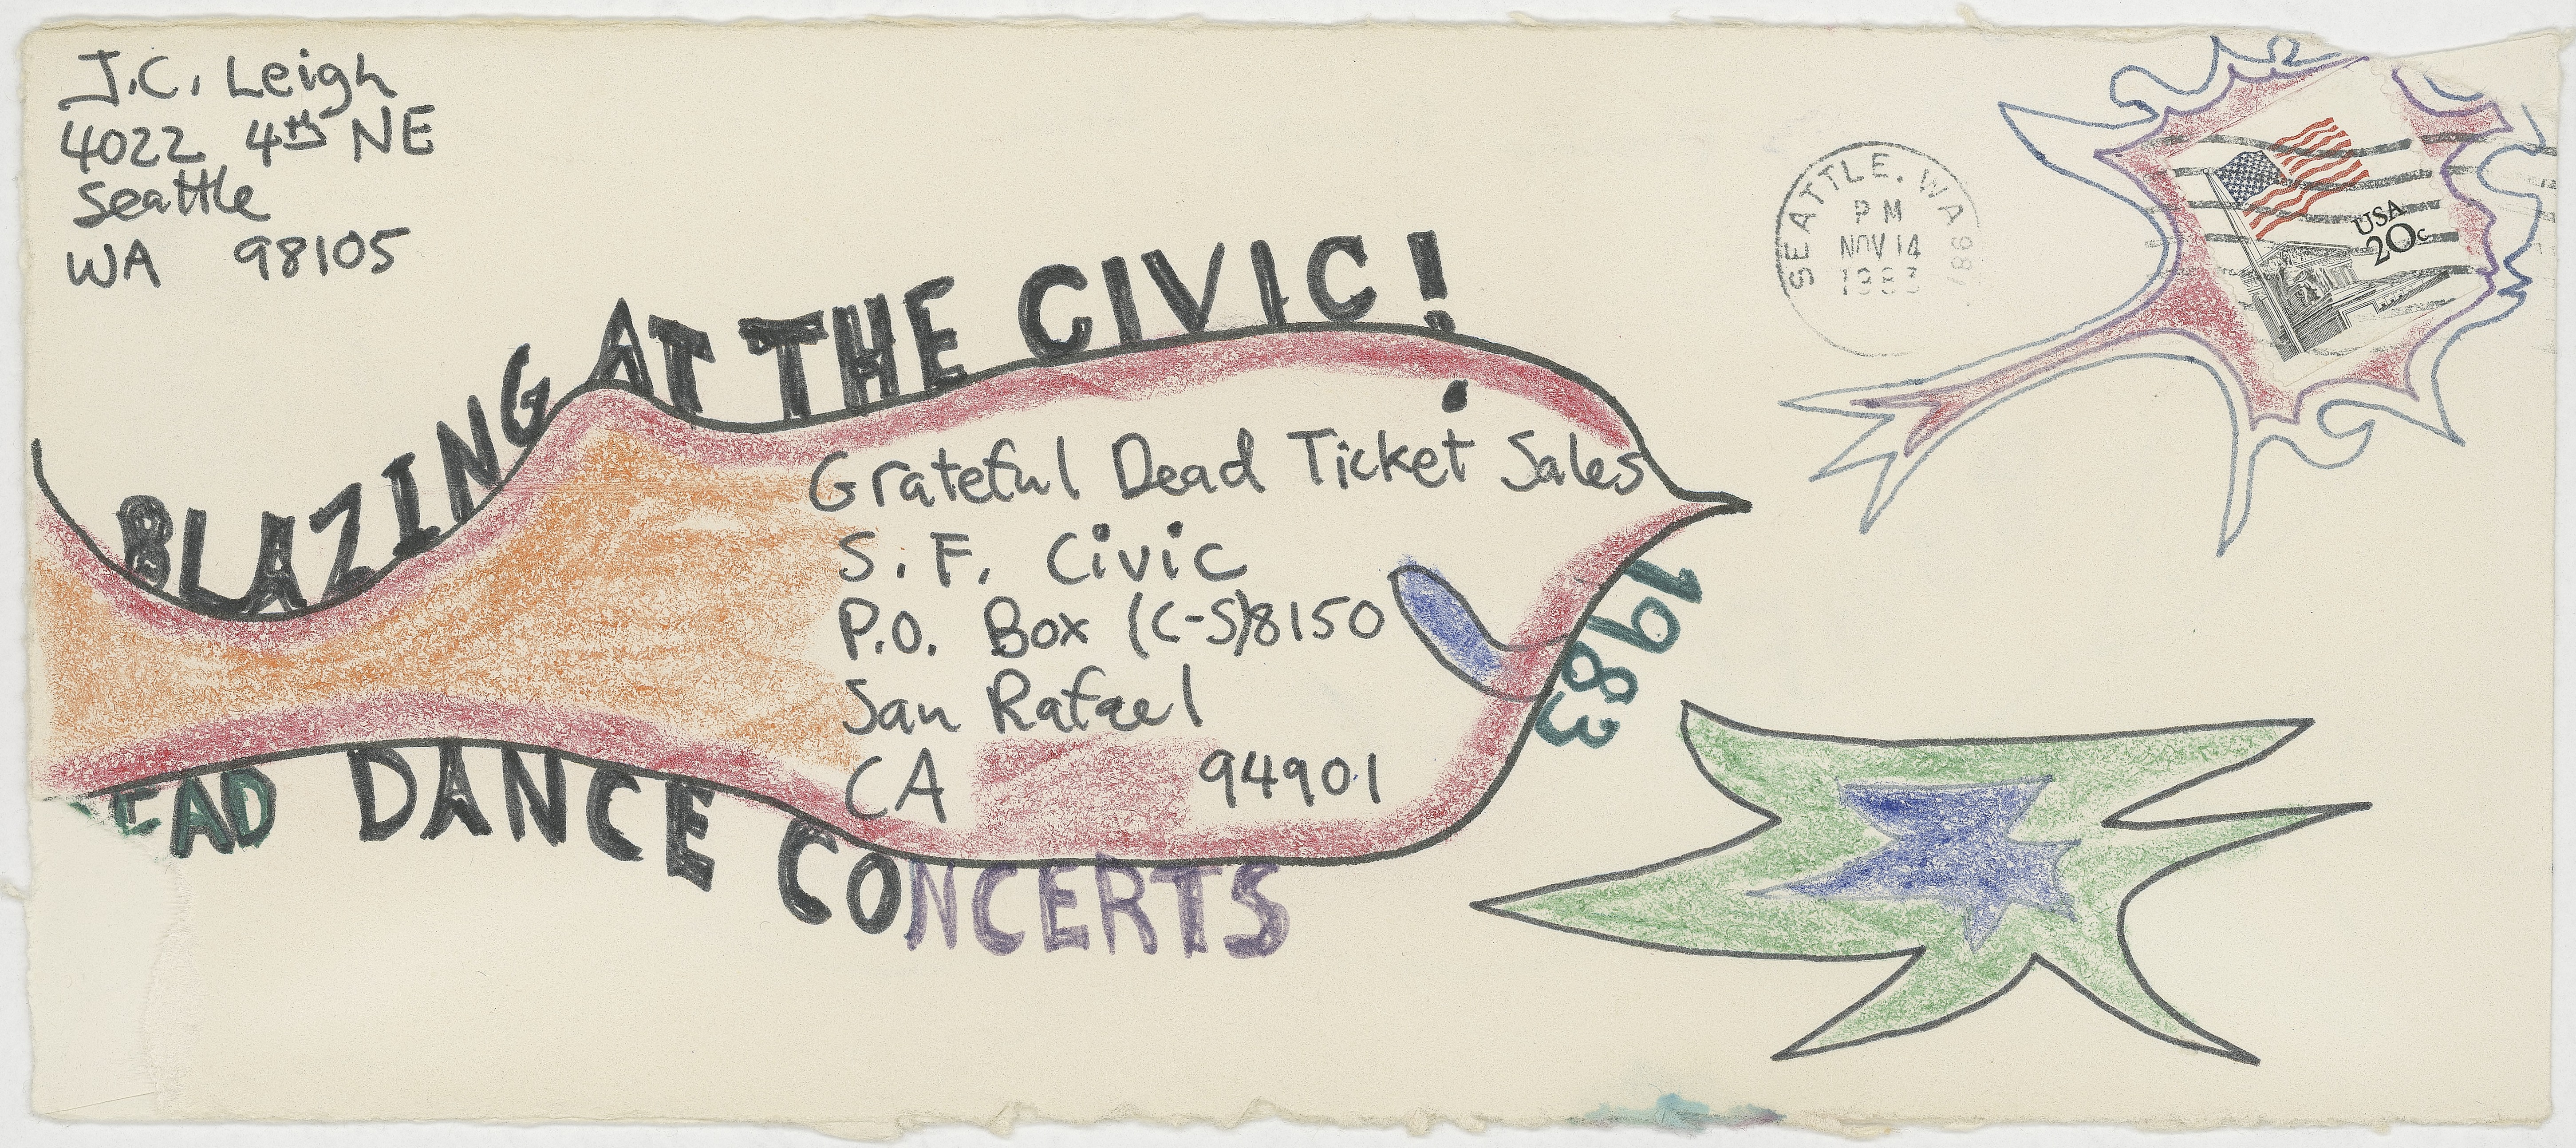 J.C. Leigh
4022 4th NE
Seattle
WA 98105
SEATTLE, WA 981
PM
NOV 14
1983
USA
20c
BLAZING AT THE CIVIC!
Grateful Dead Ticket Sales
S.F. Civic
P.O. Box (C-S)8150
San Rafael
CA 94901
1983
EAD DANCE CONCERTS